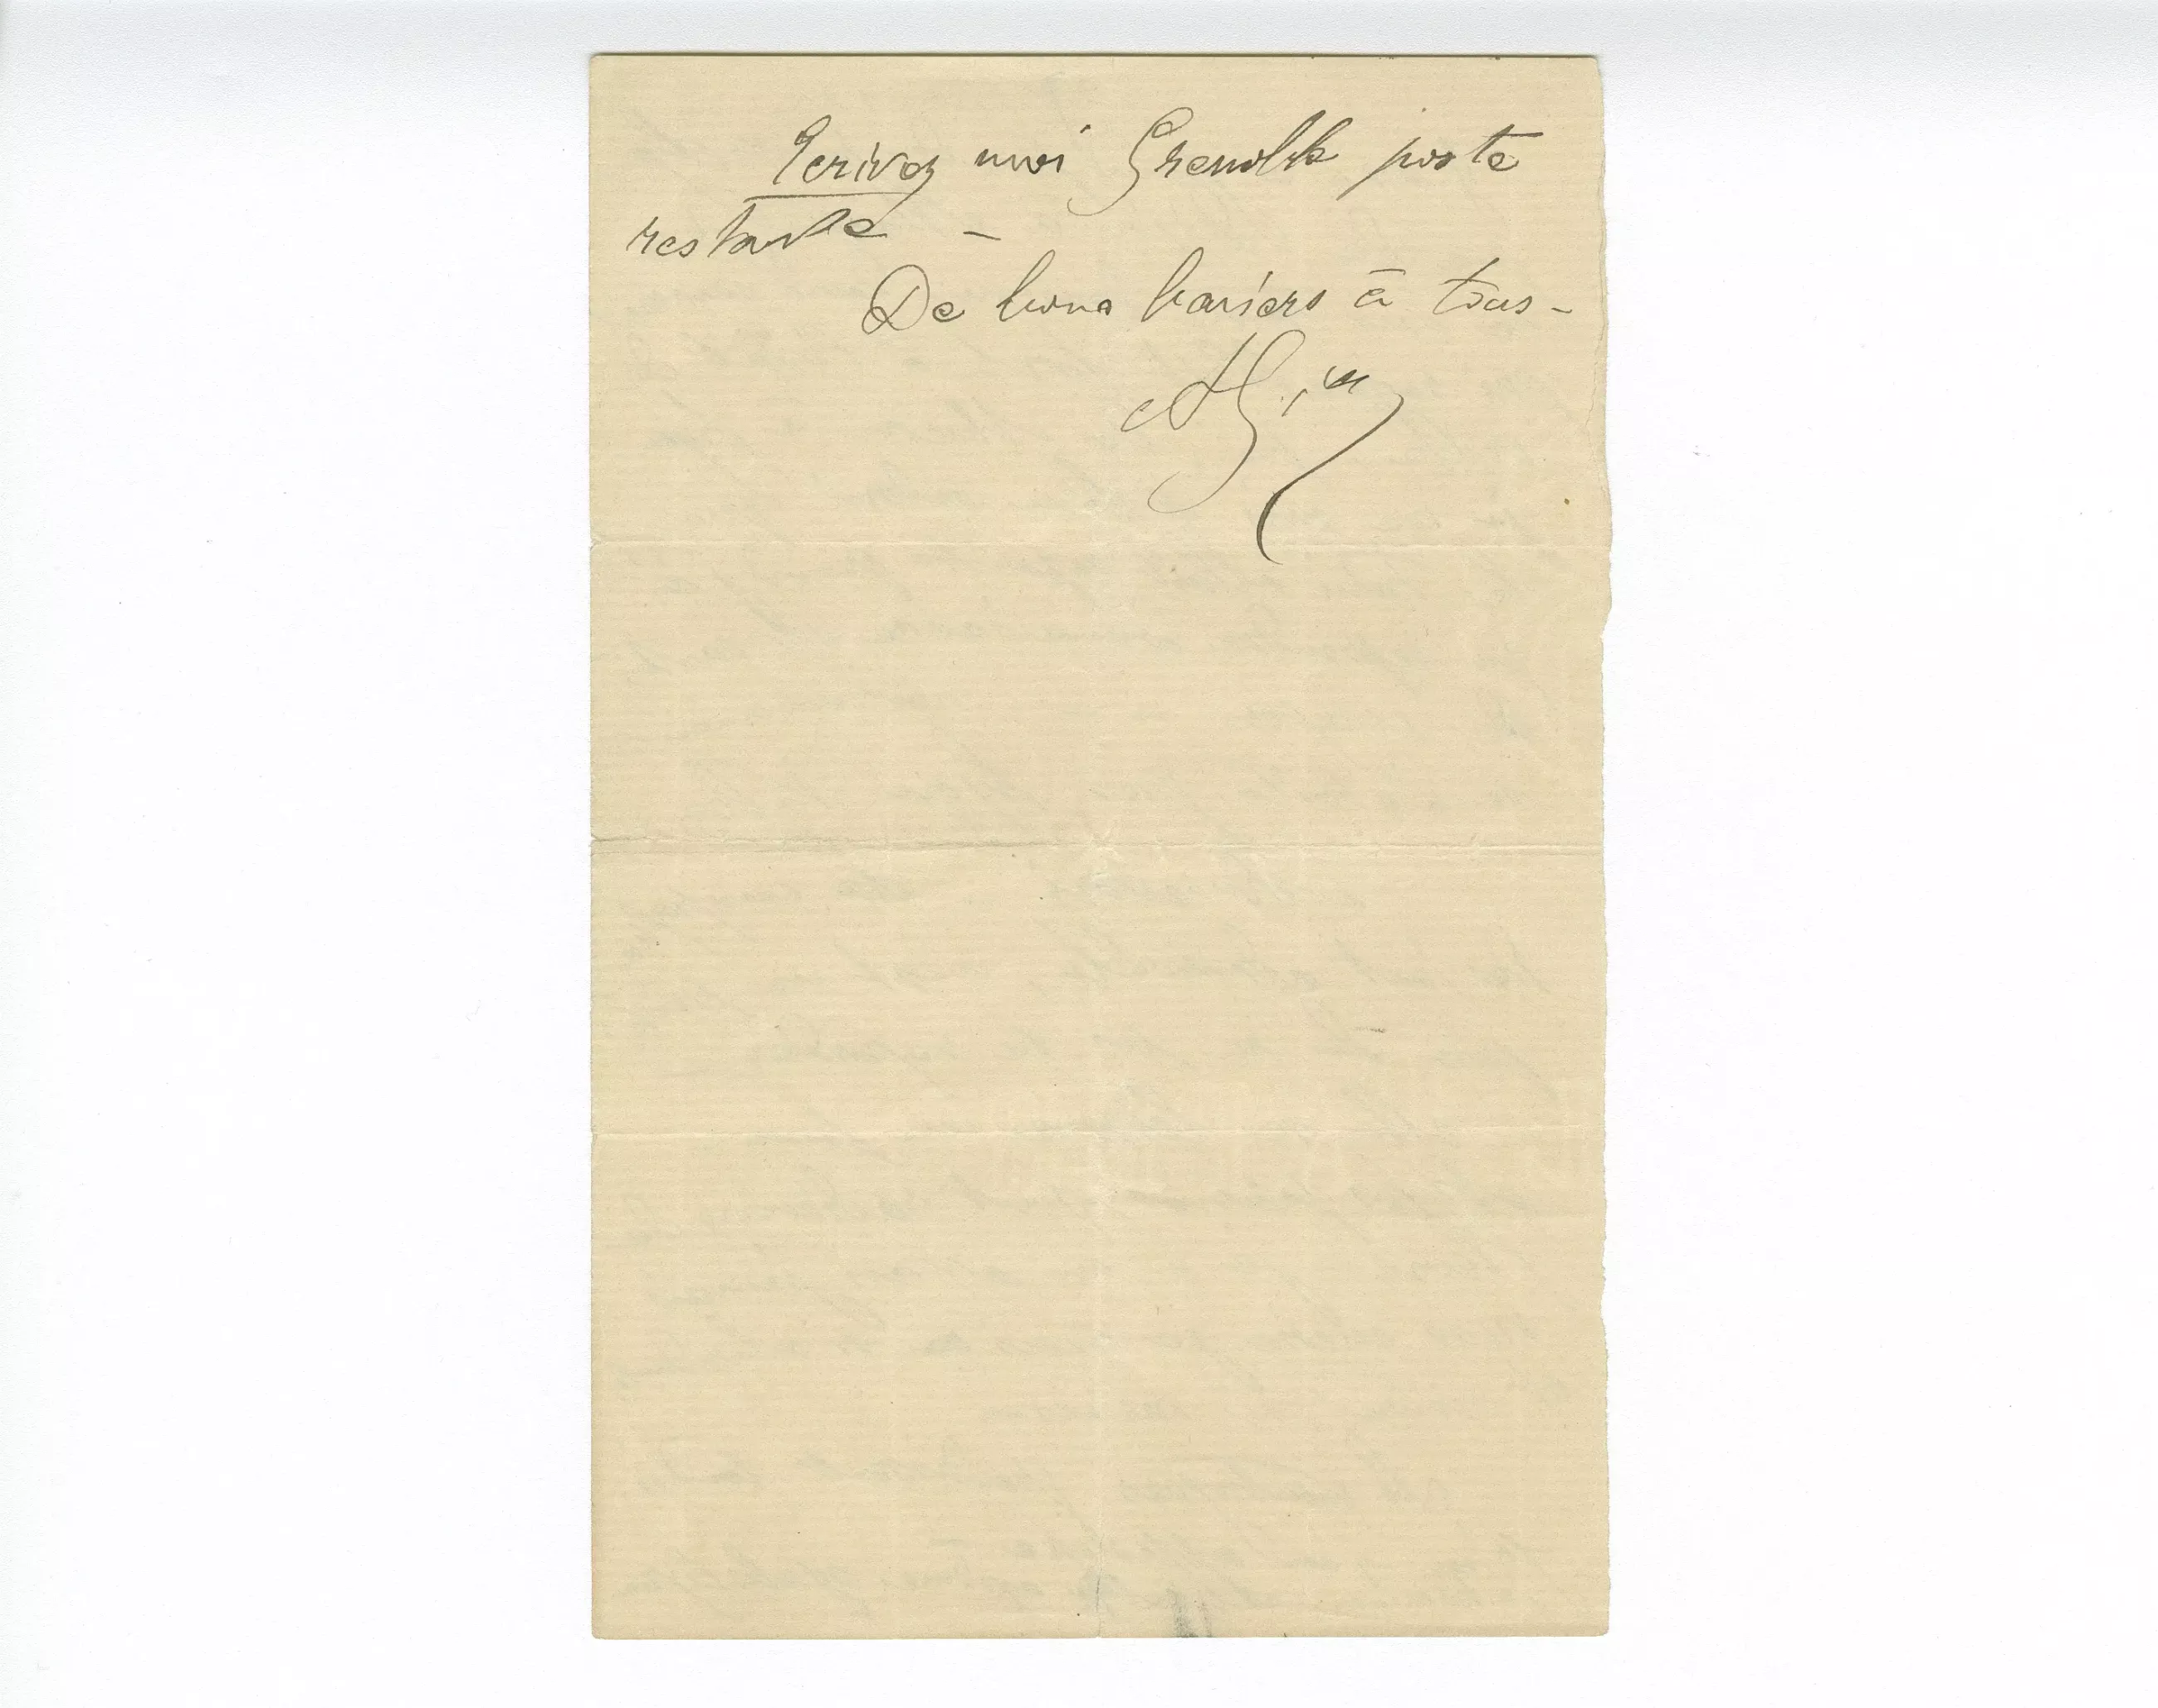 Ecrivez moi Grenoble poste
restante -
De bons baisers à tous -